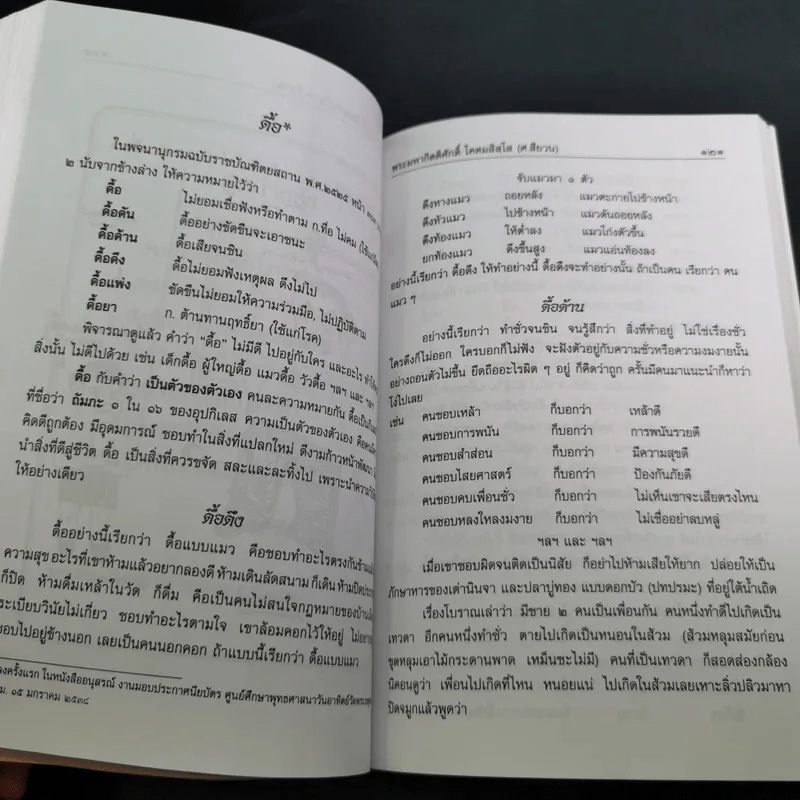 ดื้อ*
ในพจนานุกรมฉบับราชบัณฑิตยสถาน พ.ศ.๒๕๒๕ หน้า
๒ นับจากข้างล่าง ให้ความหมายไว้ว่า
ดื้อ ไม่ยอมเชื่อฟังหรือทำตาม ก.ทื่อ ไม่คม
ดื้อดัน ดื้ออย่างขัดขืนจะเอาชนะ
ดื้อด้าน ดื้อเสียจนชิน
ดื้อดึง ดื้อไม่ยอมฟังเหตุผล ดึงไม่ไป
ดื้อแพ่ง ขัดขืนไม่ยอมให้ความร่วมมือ, ไม่ปฏิบัติตาม
ดื้อยา ก. ต้านทานฤทธิ์ยา (ใช้แก่โรค)
พิจารณาดูแล้ว คำว่า "ดื้อ" ไม่มีดี ไปอยู่กับใคร และอะไร
สิ่งนั้น ไม่ดีไปด้วย เช่น เด็กดื้อ ผู้ใหญ่ดื้อ แมวดื้อ วัวดื้อ ฯลฯ และ ฯลฯ
ดื้อ กับคำว่า เป็นตัวของตัวเอง คนละความหมายกัน
ที่ชื่อว่า ถัมภะ ๑ ใน ๑๖ ของอุปกิเลส ความเป็นตัวของตัวเอง
คิดดีถูกต้อง มีอุดมการณ์ ชอบทำในสิ่งที่แปลกใหม่ ดีงามก้าวหน้าพัฒนา
นำสิ่งที่ดีสู่ชีวิต ดื้อ เป็นสิ่งที่ควรขจัด สละและละทิ้งไป เพราะนำความ
ให้อย่างเดียว
ดื้อดึง
ดื้ออย่างนี้เรียกว่า ดื้อแบบแมว คือชอบทำอะไรตรงกันข้าม
ความสุข อะไรที่เขาห้ามแล้วอยากลองดี ห้ามเดินลัดสนาม ก็เดิน ห้ามปิด
ก็ปิด ห้ามดื่มเหล้าในวัด ก็ดื่ม คือเป็นคนไม่สนใจกฎหมายของบ้าน
ระเบียบวินัยไม่เกี่ยว ชอบทำอะไรตามใจ เขาล้อมคอกไว้ให้อยู่
ชอบไปอยู่ข้างนอก เลยเป็นคนนอกคอก ถ้าแบบนี้เรียกว่า ดื้อแบบแมว
ครั้งแรก ในหนังสืออนุสรณ์ งานมอบประกาศนียบัตร ศูนย์ศึกษาพุทธศาสนาวันอาทิตย์
ม. ๑๕ มกราคม ๒๕๓๔
พระมหากิตติศักดิ์ โคตมสิสฺโส (ศ.สียวน) ๑๒๑
จับแมวมา ๑ ตัว
ดึงทางแมว ถอยหลัง แมวตะกายไปข้างหน้า
ดึงหัวแมว ไปข้างหน้า แมวดันถอยหลัง
ดึงท้องแมว ให้ต่ำลง แมวโก่งตัวขึ้น
ยกท้องแมว ดึงขึ้นสูง แมวแอ่นท้องลง
อย่างนี้เรียกว่า ดื้อดึง ให้ทำอย่างนี้ ดื้อดึงจะทำอย่างนั้น ถ้าเป็นคน เรียกว่า คน
แมว ๆ
ดื้อด้าน
อย่างนี้เรียกว่า ทำชั่วจนชิน จนรู้สึกว่า สิ่งที่ทำอยู่ ไม่ใช่เรื่องชั่ว
ใครดึงก็ไม่ออก ใครบอกก็ไม่ฟัง จะฝังตัวอยู่กับความชั่วหรือความงมงายนั้น
อย่างถอนตัวไม่ขึ้น ยึดถืออะไรผิด ๆ อยู่ ก็คิดว่าถูก ครั้นมีคนมาแนะนำก็หาว่า
โง่ไปเลย
เช่น คนชอบเหล้า ก็บอกว่า เหล้าดี
คนชอบการพนัน ก็บอกว่า การพนันรวยดี
คนชอบสำส่อน ก็บอกว่า มีความสุขดี
คนชอบไสยศาสตร์ ก็บอกว่า ป้องกันภัยดี
คนชอบคบเพื่อนชั่ว ก็บอกว่า ไม่เห็นเขาจะเสียตรงไหน
คนชอบหลงใหลงมงาย ก็บอกว่า ไม่เชื่ออย่าลบหลู่
ฯลฯ และ ฯลฯ
เมื่อเขาชอบผิดจนติดเป็นนิสัย ก็อย่าไปห้ามเสียให้ยาก ปล่อยให้เป็น
ภักษาหารของเต่านินจา และปลาบู่ทอง แบบดอกบัว (ปทปรมะ) ที่อยู่ใต้น้ำเถิด
เรื่องโบราณเล่าว่า มีชาย ๒ คนเป็นเพื่อนกัน คนหนึ่งทำดีไปเกิดเป็น
เทวดา อีกคนหนึ่งทำชั่ว ตายไปเกิดเป็นหนอนในส้วม (ส้วมหลุมสมัยก่อน
ขุดหลุมเอาไม้กระดานพาด เหม็นซะไม่มี) คนที่เป็นเทวดา ก็สอดส่องกล้อง
นิคอนดูว่า เพื่อนไปเกิดที่ไหน หนอยแน่ ไปเกิดในส้วมเลยเหาะลิ่วปลิวมาหา
ปิดจมูกแล้วพูดว่า